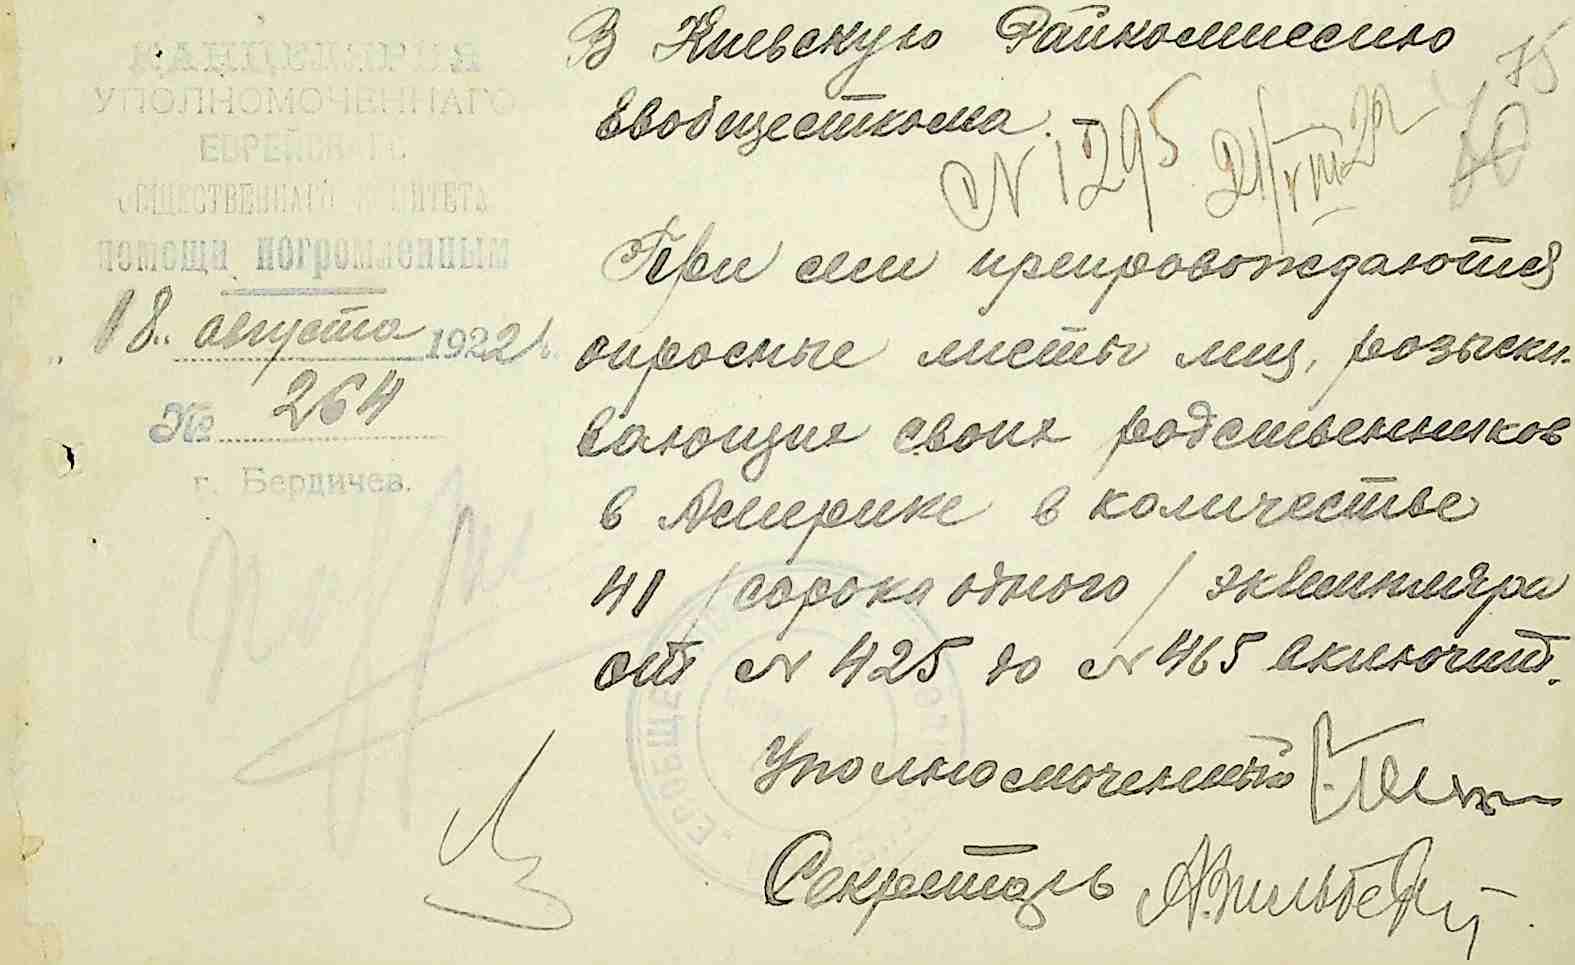 КАНЦЕЛЯРИЯ
УПОЛНОМОЧЕННАГО
ЕВРЕЙСКАГО
ОБЩЕСТВЕННАГО КОМИТЕТА
помощи погромленным
"18" августа 1922 г.
№ 264
г. Бердичев.
В Киевскую Райкомиссию
Евобщесткома.
75
60
N 1295 21/VIII 22
При сем препровождаются
опросные листы лиц, розыски-
вающих своих родственников
в Америке в количестве
41 /сорока одного/ экземпляра
от N 425 до N 465 включит.
Уполномоченный
Секретарь
ЕВОБЩЕ